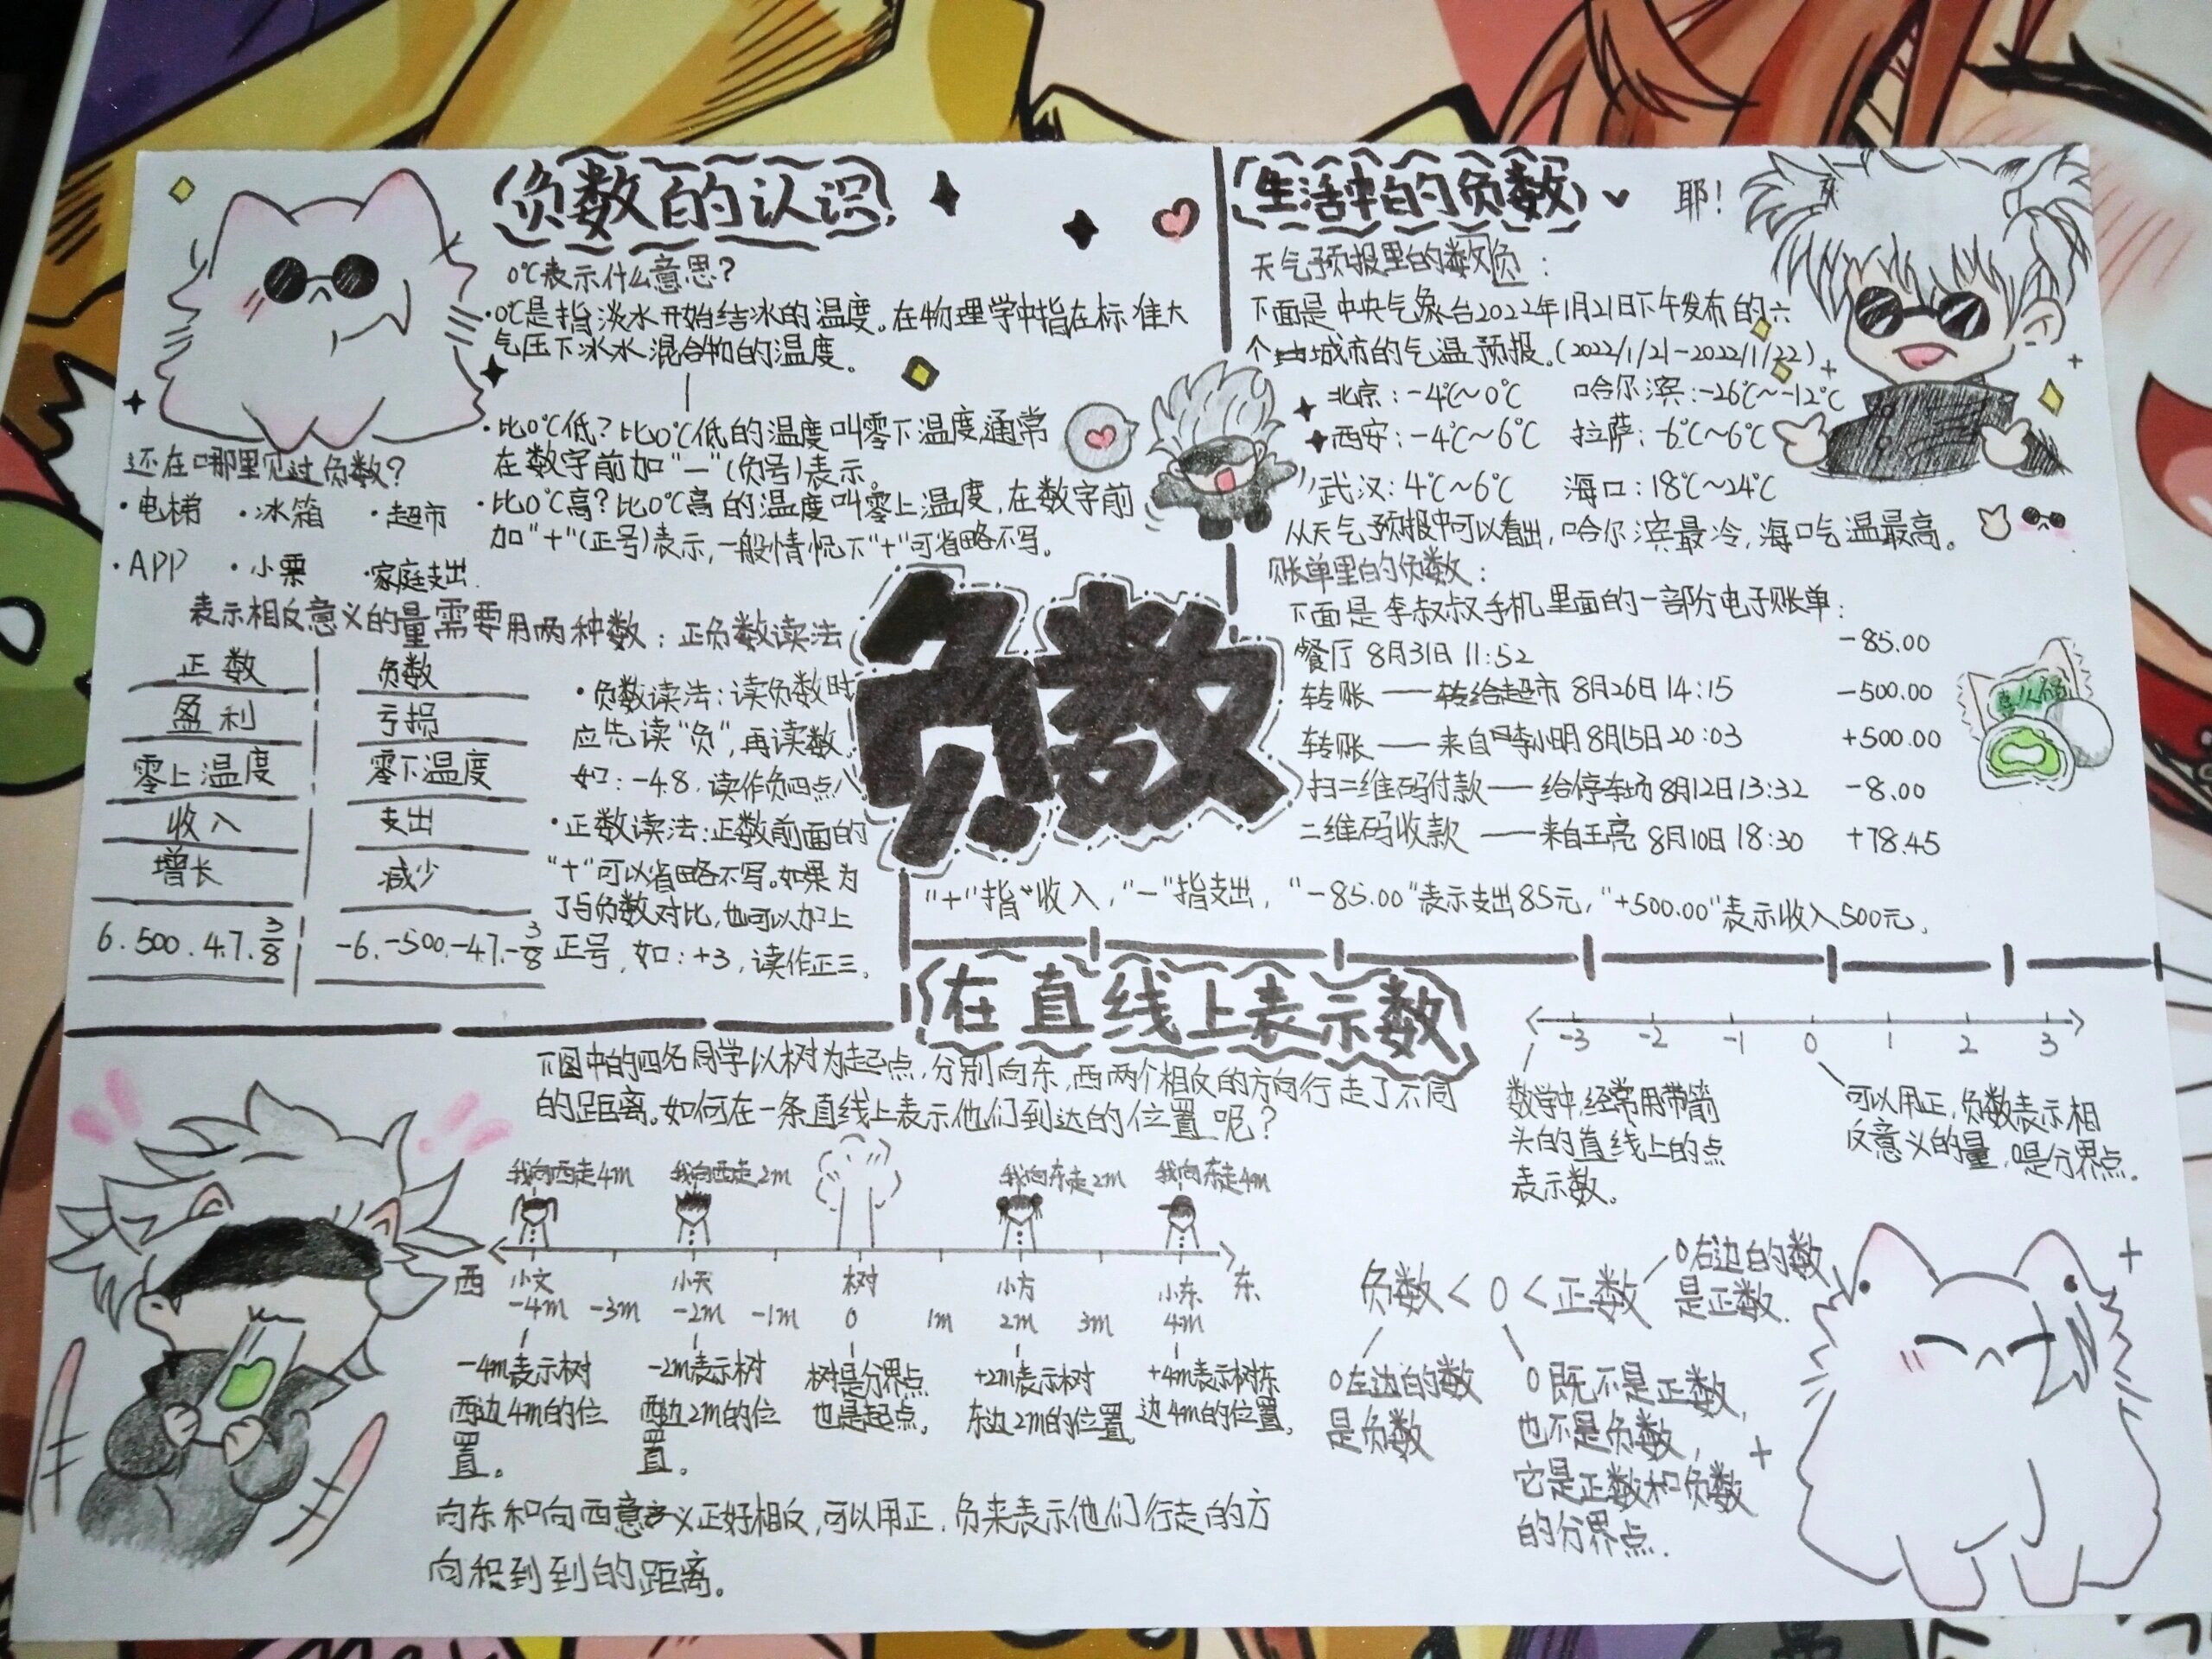 负数的认识
0℃表示什么意思?
·0℃是指淡水开始结冰的温度。在物理学中指在标准大
气压下冰水混合物的温度。
·比0℃低?比0℃低的温度叫零下温度,通常
在数字前加“—”(负号)表示。
·比0℃高?比0℃高的温度叫零上温度,在数字前
加“+”(正号)表示,一般情况下“+”可省略不写。
还在哪里见过负数?
·电梯 ·冰箱 ·超市
·APP ·小票 ·家庭支出.
表示相反意义的量需要用两种数:正负数读法
正数 负数
盈利 亏损
零上温度 零下温度
收入 支出
增长 减少
6.500.4.7.3/8 -6.-500.-4.7.-3/8
·负数读法:读负数时
应先读“负”,再读数
如:-4.8.读作负四点八
·正数读法:正数前面的
“+”可以省略不写。如果为
了与负数对比,也可以加上
正号,如:+3,读作正三。
负数
生活中的负数
耶!
天气预报里的数负:
下面是中央气象台2022年1月21日下午发布的六
个城市的气温预报。(2022/1/21-2022/1/22)
北京:-4℃~0℃ 哈尔滨:-26℃~-12℃
西安:-4℃~6℃ 拉萨:-6℃~6℃
武汉:4℃~6℃ 海口:18℃~24℃
从天气预报中可以看出,哈尔滨最冷,海口气温最高。
账单里的负数:
下面是李叔叔手机里面的一部分电子账单:
餐厅 8月31日 11:52 -85.00
转账——转给超市 8月26日 14:15 -500.00
转账——来自李小明 8月15日 20:03 +500.00
扫二维码付款——给停车场 8月12日 13:32 -8.00
二维码收款——来自王亮 8月10日 18:30 +78.45
“+”指收入,“-”指支出,“-85.00”表示支出85元,“+500.00”表示收入500元。
在直线上表示数
下图中的四名同学以树为起点,分别向东,西两个相反的方向行走了不同
的距离。如何在一条直线上表示他们到达的位置呢?
我向西走4m 我向西走2m 我向东走2m 我向东走4m
西 小文 小天 树 小方 小东 东
-4m -3m -2m -1m 0 1m 2m 3m 4m
-4m表示树
西边4m的位
置。
-2m表示树
西边2m的位
置。
树是分界点
也是起点。
+2m表示树
东边2m的位置
+4m表示树东
边4m的位置。
向东和向西意义正好相反,可以用正.负来表示他们行走的方
向积到到的距离。
-3 -2 -1 0 1 2 3
数学中,经常用带箭
头的直线上的点
表示数。
可以用正,负数表示相
反意义的量,0是分界点.
负数<0<正数
0右边的数
是正数.
0左边的数
是负数
0既不是正数,
也不是负数,
它是正数和负数
的分界点.